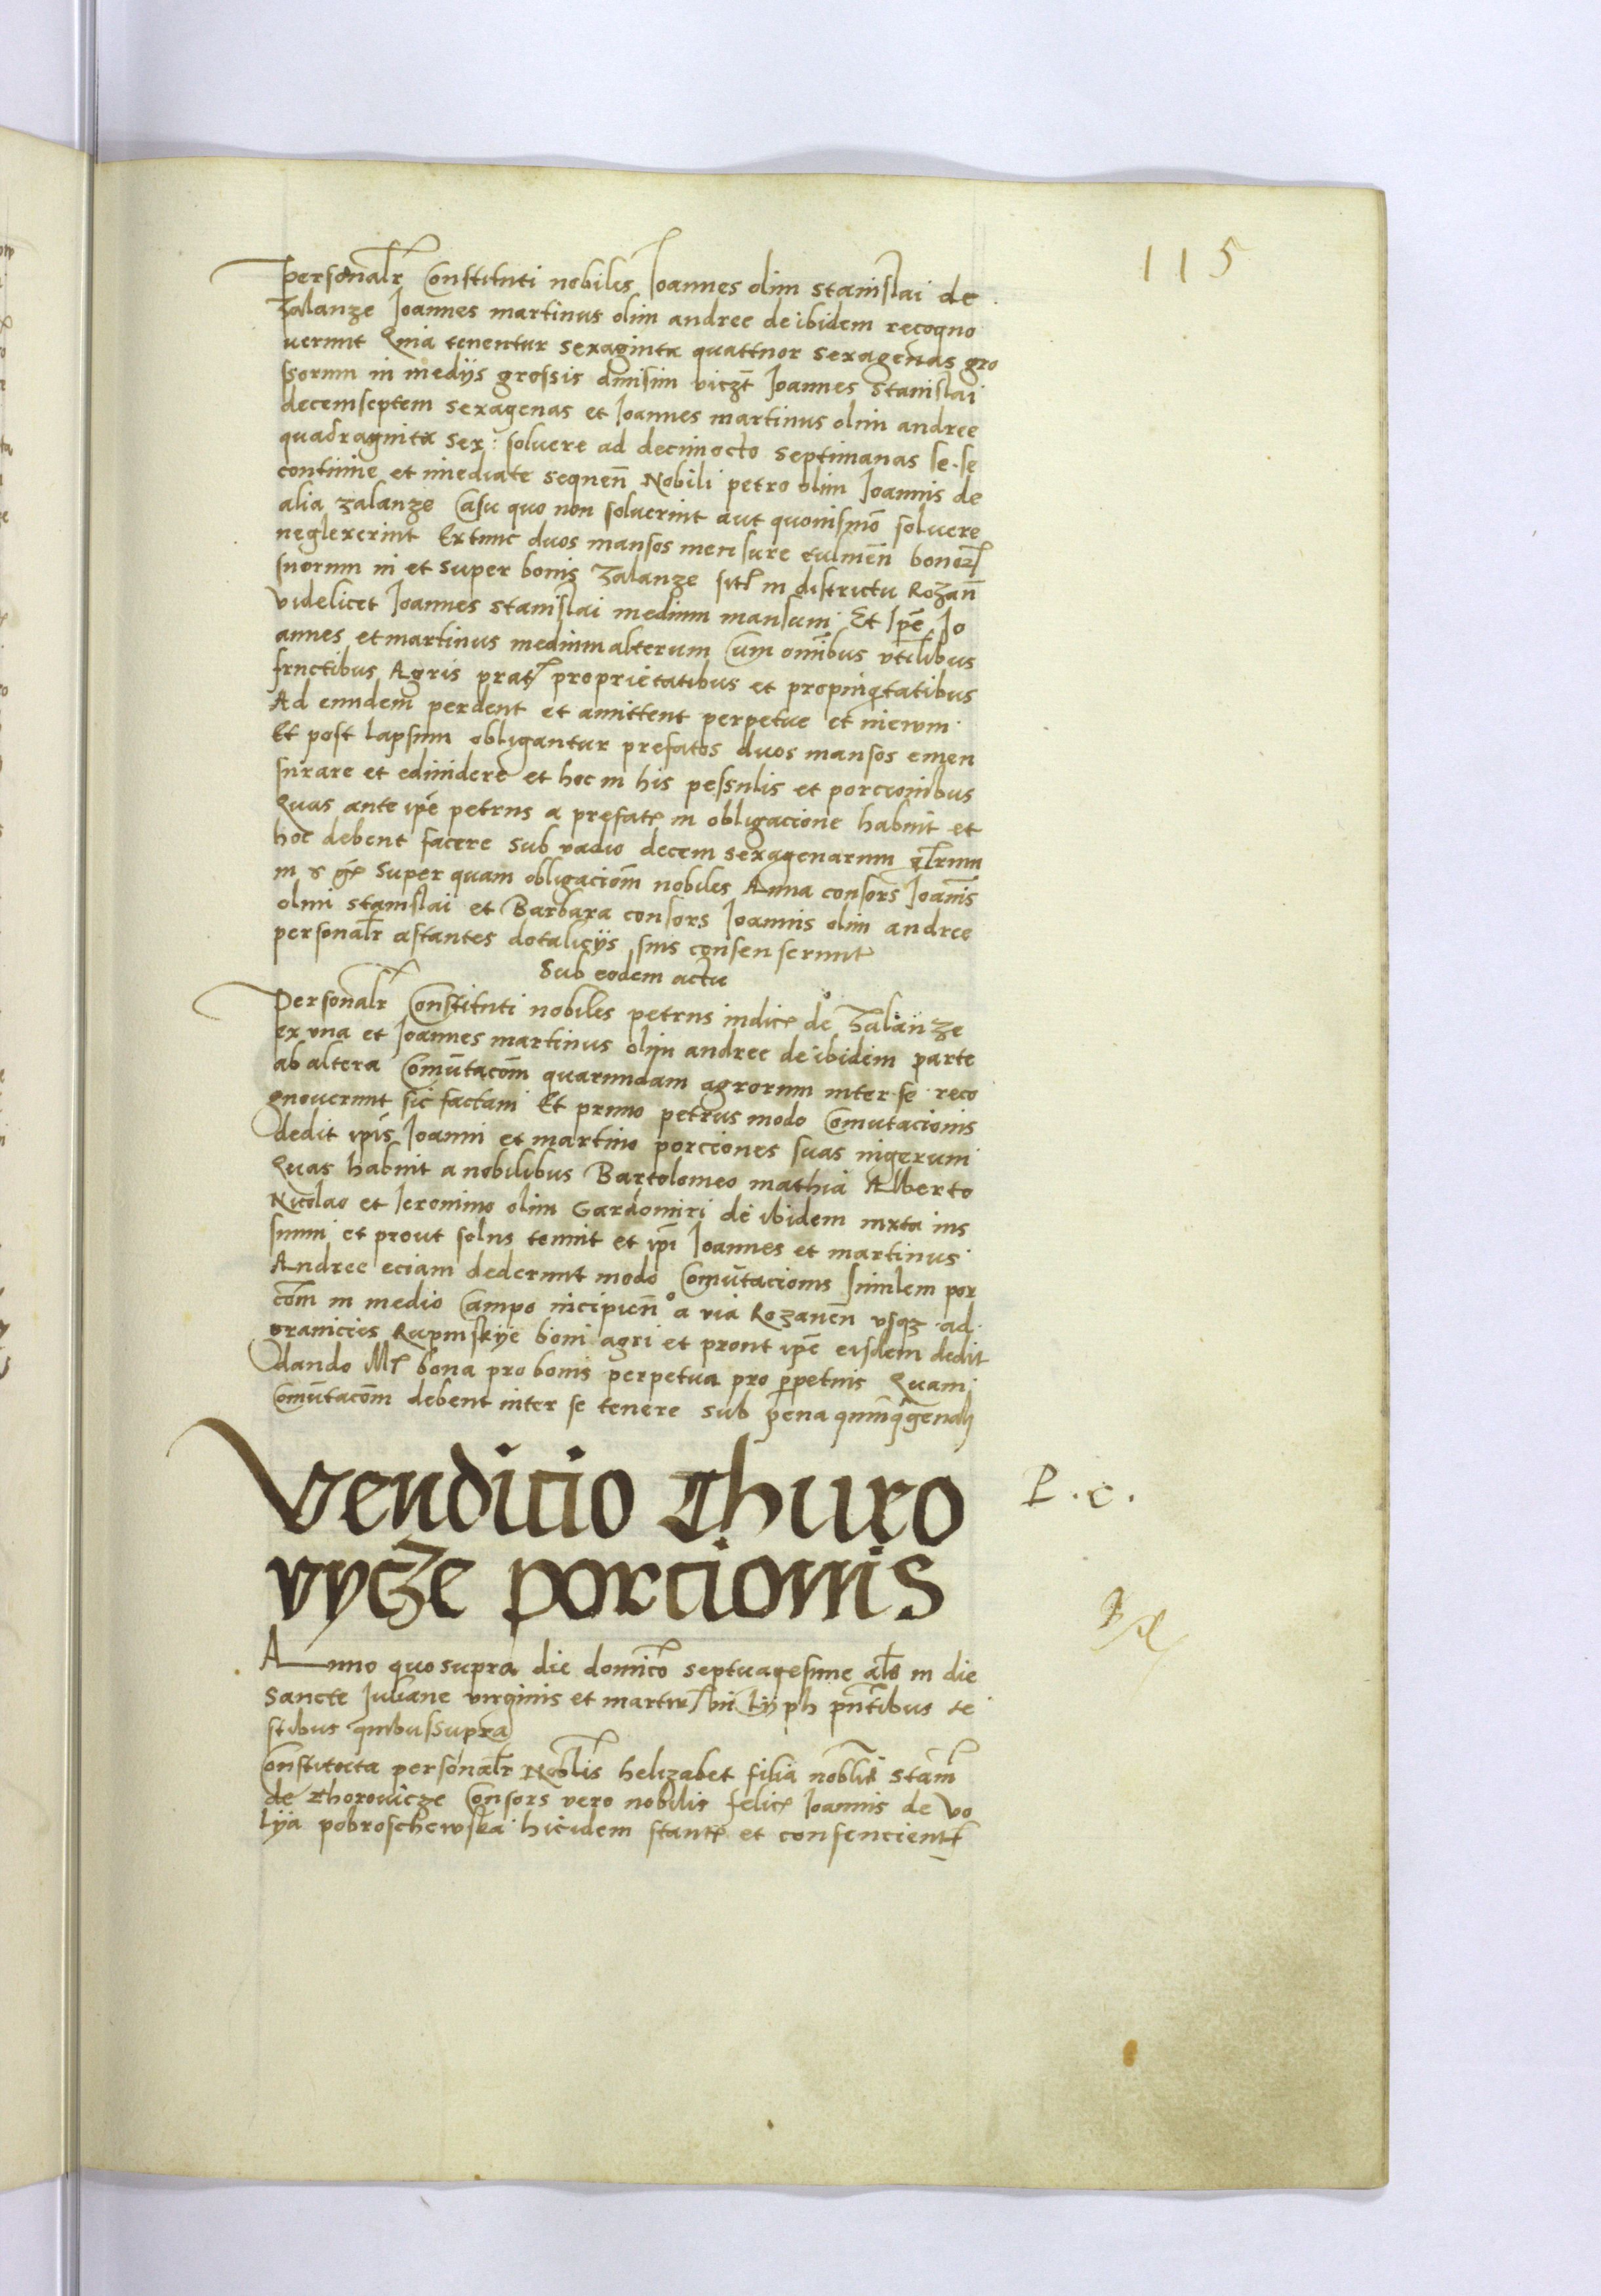 115
personalr Constituti nobiles Joannes olim stanislai de
Zalanze Joannes martinus olim andree de ibidem recogno
uerunt Quia tenentur sexaginta quattuor sexagenas gro
ssorum in medijs grossis diuisim viczt Joannes Stanislai
decemseptem sexagenas et Joannes martinus olim andree
quadraginta sex: soluere ad decimocto septimanas se. se
continue et imediate sequen Nobili petro olim Joannis de
alia zalanze Casu quo non soluerint aut quouismo soluere
neglexerint Extunc duos mansos mensure culmen bonor
suorum in et super bonis Zalanze sit in districtu Rozan
videlicet Joannes stanislai medium mansum Et Ipe Jo
annes et martinus medium alterum Cum omibus vtilibus
fructibus Agris prat proprietatibus et propinqtatibus
Ad eundem perdent et amittent perpetue et in euum
Et post lapsum obligantur prefatos duos mansos emen
surare et ediuidere et hoc in his pessulis et porcionibus
Quas ante ipe petrus a prefat in obligacione habuit et
hoc debent facere sub vadio decem sexagenarum
in gr super quam obligaciom nobiles Anna consors Joanis
olim stanislai et Barbara consors Joannis olim andree
personalr astantes dotalicijs suis consenserunt
Sub eodem actu
Personalr Constituti nobiles petrus iudic de Zalanze
ex vna et Joannes martinus olim andree de ibidem parte
ab altera Comutacom quarundam agrorum inter se reco
gnouerunt sic factam Et primo petrus modo Comutacionis
dedit ipis Joanni et martino porciones suas nigerum
Quas habuit a nobilibus Bartolomeo mathia Alberto
Nicolao et Jeronimo olim Gardomiri de ibidem iuxta ius
suum et prout solus tenuit et ipi Joannes et martinus
Andree eciam dederunt modo Comutacionis similem por
com in medio Campo incipien a via Rozanen vsqz ad
granicies Rupinskye boni agri et prout ipe eisdem dedit
dando bona pro bonis perpetua pro ppetuis Quam
Comutacom debent inter se tenere sub pena
Vendicio Thuro
vycze porcionis
P. c.
Anno quo supra die domico septuagesime als in die
Sancte Juliane virginis et martir in Lijph pntibus te
stibus quibus supra
Constituta personalr Noblis helizabet filia noblis stanisl
de Thorovicze Consors vero nobilis felic Joannis de Vo
lya pobroschewska hicidem stant et consencient